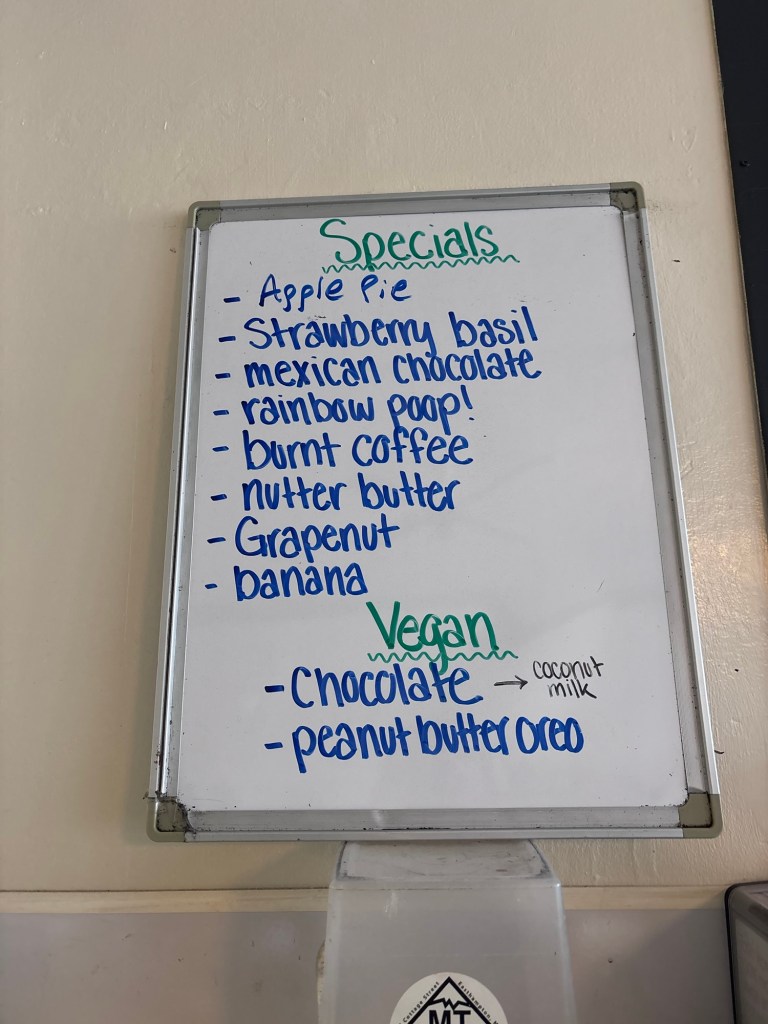 Specials
- Apple Pie
- Strawberry basil
- mexican chocolate
- rainbow poop!
- burnt coffee
- nutter butter
- Grapenut
- banana
Vegan
- Chocolate → coconut
milk
- peanut butter oreo
Cottage Street Easthampton,
MT